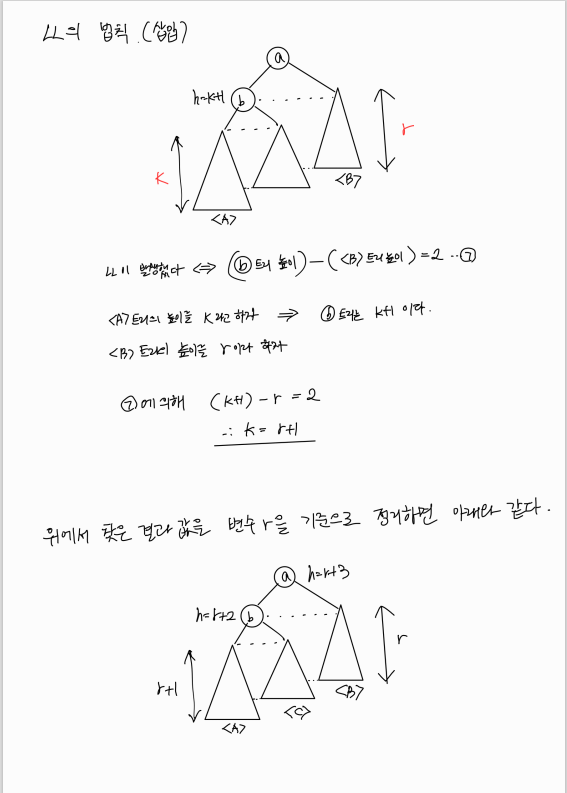 LL의 법칙 (삽입)
a
h=k+1 b
r
k
<B>
<A>
LL이 발생했다 ⇔ (ⓑ트리 높이) - (<B>트리높이) = 2 ··㉠
<A>트리의 높이를 k라고 하자 ⇒ ⓑ트리는 k+1 이다.
<B>트리의 높이를 r이라 하자
㉠에 의해 (k+1) - r = 2
∴ k = r+1
위에서 찾은 결과 값을 변수 r을 기준으로 정리하면 아래와 같다.
a h=r+3
h=r+2 b
r
r+1
<B>
<C>
<A>